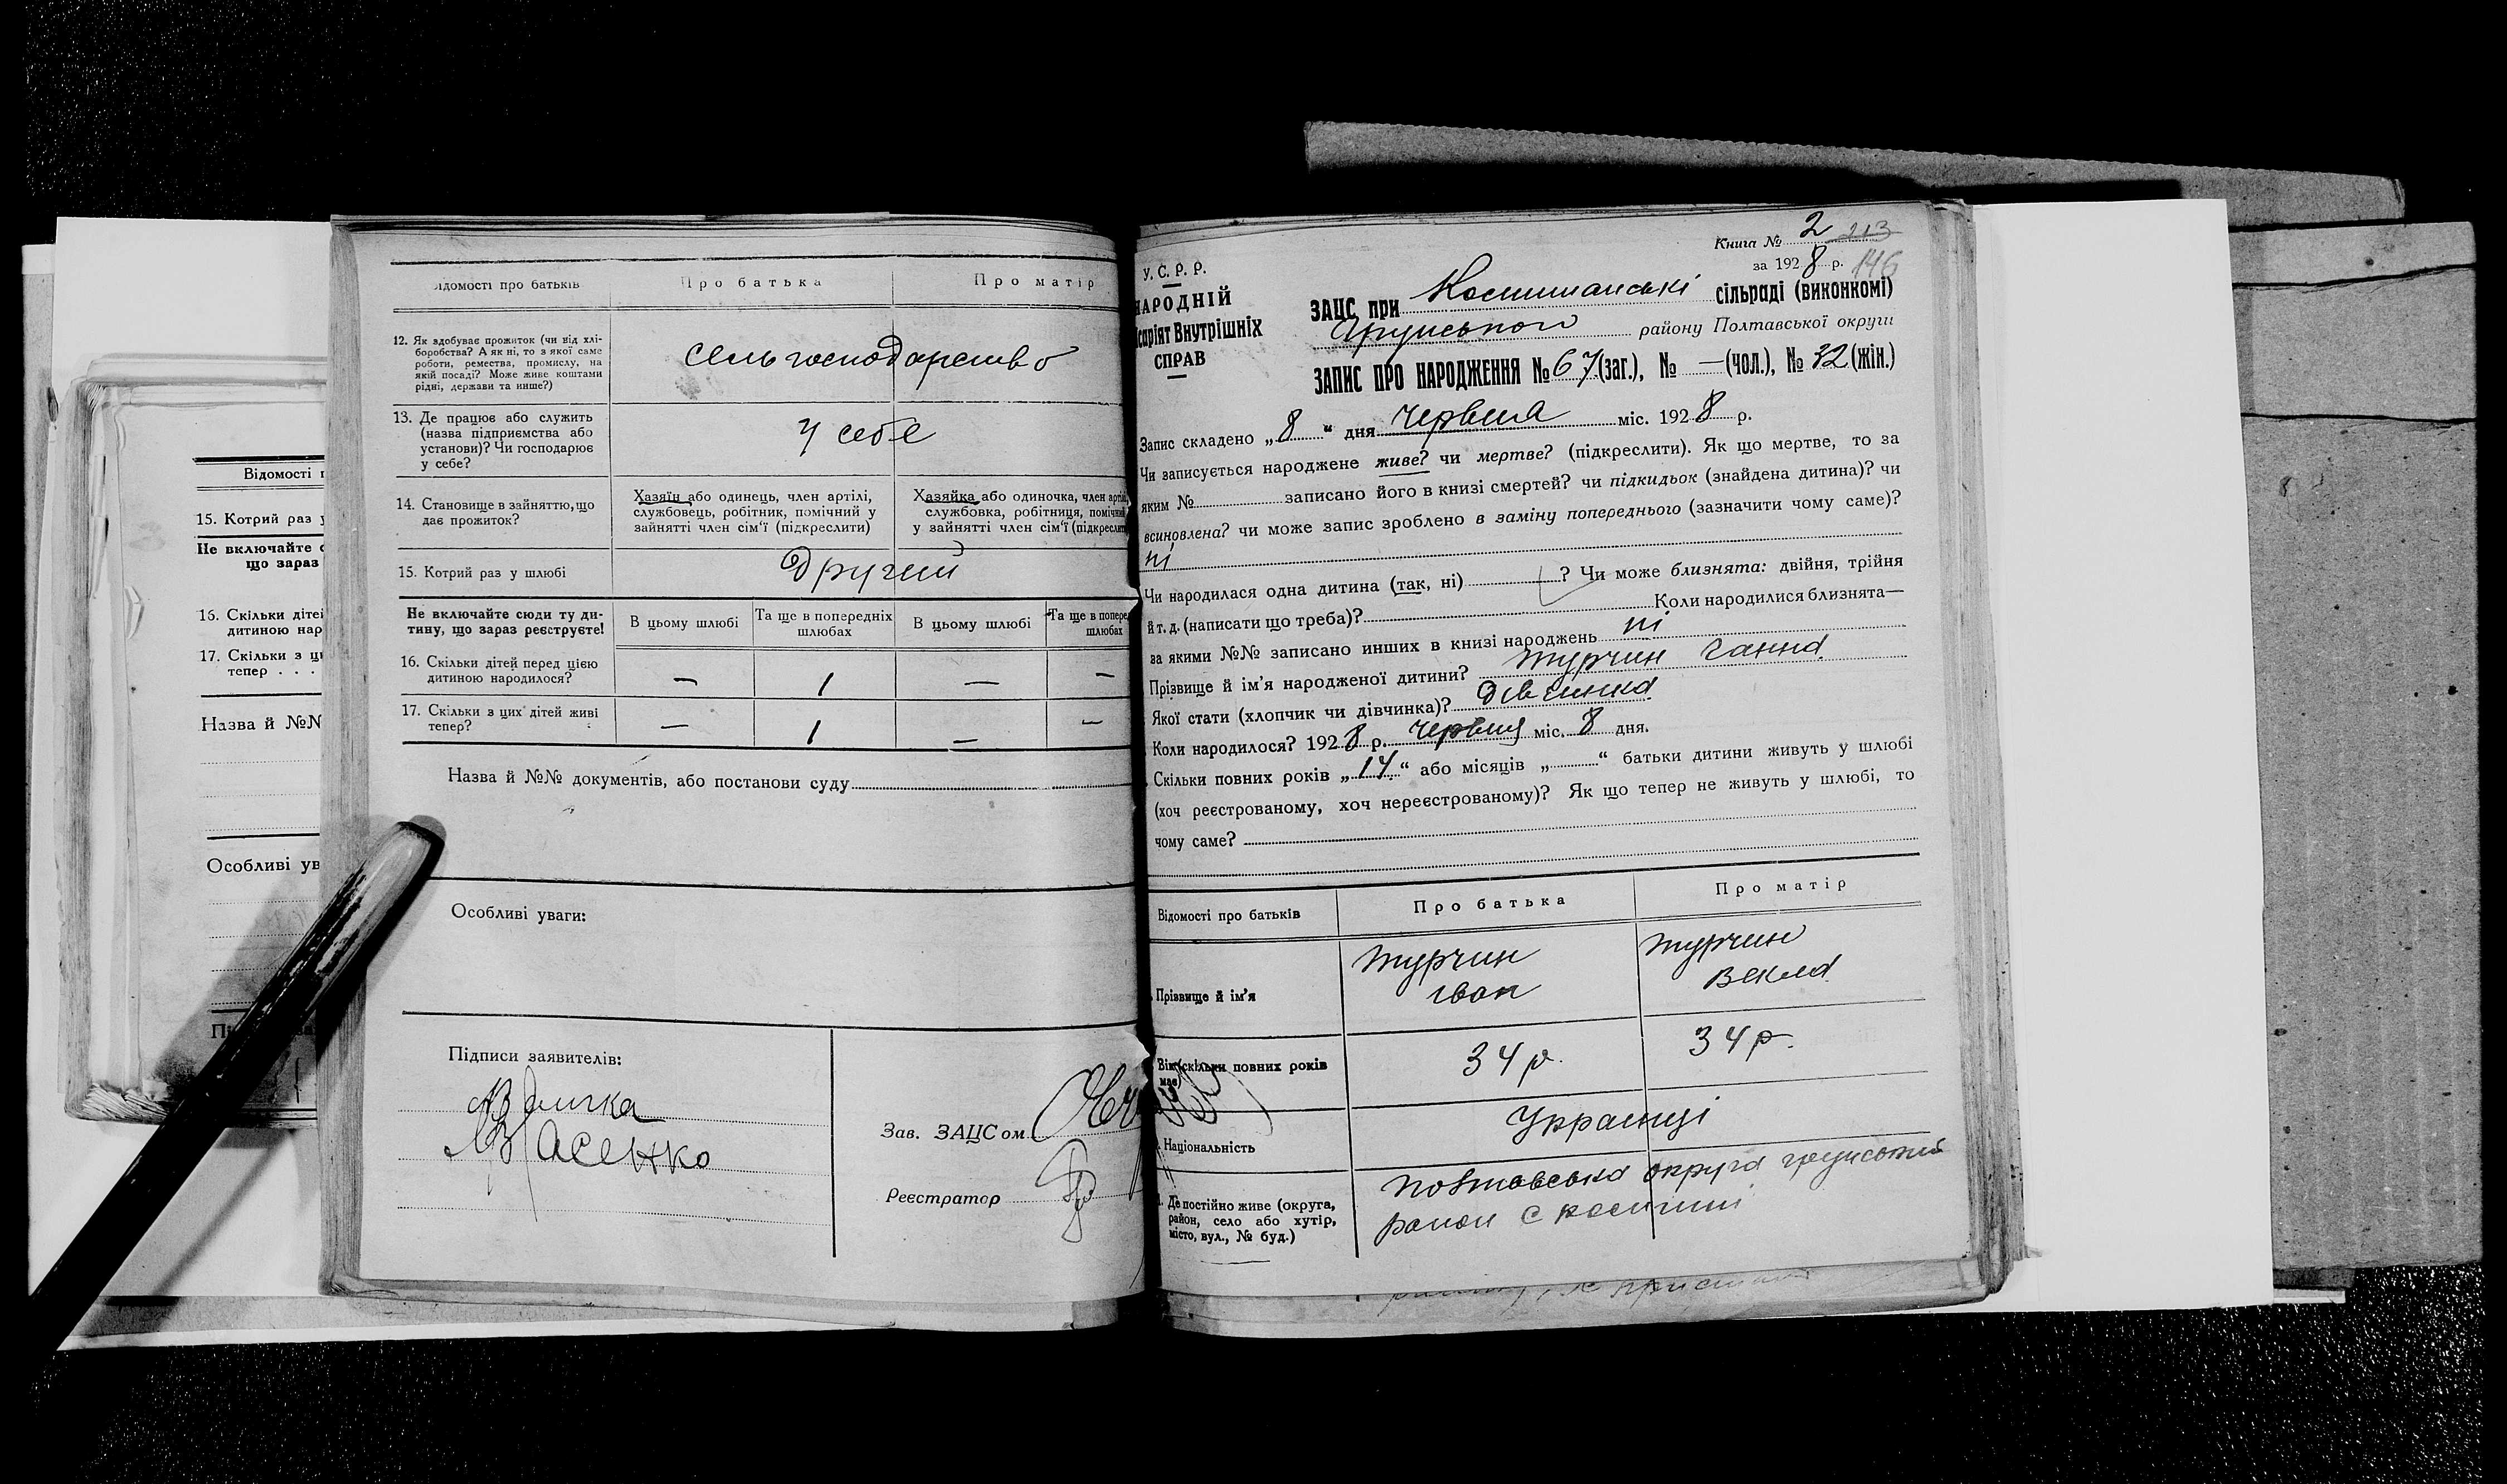 Відомості п
15. Котрий раз у
Не включайте с
що зараз
16. Скільки дітей
дитиною нар
17. Скільки з ци
тепер . . .
Назва й №№
Особливі ув
відомості про батьків
Про батька
Про матір
12. Як здобуває прожиток (чи від хлі-
боробства? А як ні, то з якої саме
роботи, ремества, промислу, на
якій посаді? Може живе коштами
рідні, держави та инше?)
сельгосподарство
13. Де працює або служить
(назва підприємства або
установи)? Чи господарює
у себе?
у себе
14. Становище в зайняттю, що
дає прожиток?
Хазяїн або одинець, член артілі,
службовець, робітник, помічний у
зайнятті член сім'ї (підкреслити)
Хазяйка або одиночка, член артілі,
службовка, робітниця, помічний
у зайнятті член сім'ї (підкреслити
15. Котрий раз у шлюбі
Другий
Не включайте сюди ту ди-
тину, що зараз реєструєте!
В цьому шлюбі
Та ще в попередніх
шлюбах
В цьому шлюбі
Та ще в поперед
шлюбах
16. Скільки дітей перед цією
дитиною народилося?
— 1 — —
17. Скільки з цих дітей живі
тепер?
— 1 — —
Назва й №№ документів, або постанови суду
Особливі уваги:
Підписи заявителів:
Власенко
Зав. ЗАЦСом
Реєстратор
Книга № 2 213
за 1928 р. 146
У. С. Р. Р.
НАРОДНІЙ
саріят Внутрішніх
СПРАВ
ЗАЦС при сільраді (виконкомі)
Грунського району Полтавської округи
ЗАПИС ПРО НАРОДЖЕННЯ № 67 (заг.), № — (чол.), № 32 (жін.)
Запис складено „8“ дня червня міс. 1928 р.
Чи записується народжене живе? чи мертве? (підкреслити). Як що мертве, то за
яким № записано його в книзі смертей? чи підкидьок (знайдена дитина)? чи
всиновлена? чи може запис зроблено в заміну попереднього (зазначити чому саме)?
ні
Чи народилася одна дитина (так, ні) ? Чи може близнята: двійня, трійня
й т. д. (написати що треба)? Коли народилися близнята—
за якими №№ записано инших в книзі народжень ні
Прізвище й ім'я народженої дитини? Турчин Ганна
Якої стати (хлопчик чи дівчинка)? дівчинка
Коли народилося? 1928 р. червня міс. 8 дня.
Скільки повних років „14“ або місяців „ “ батьки дитини живуть у шлюбі
(хоч реєстрованому, хоч нереєстрованому)? Як що тепер не живуть у шлюбі, то
чому саме?
Відомості про батьків
Про батька
Про матір
Прізвище й ім'я
Турчин
Іван
Турчин
Векла
Вік (скільки повних років
має)
34 р.
34 р.
Національність
Українці
Де постійно живе (округа,
район, село або хутір,
місто, вул., № буд.)
Полтавська округа грунський
район с